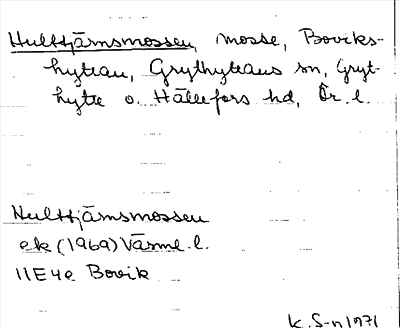 Hulttjärnsmossen, mosse, Boviks-
hyttan, Grythyttans sn, Gryt-
hytte o. Hällefors hd, Ör. l.
Hulttjärnsmossen
ek (1969) Värml. l.
11E4e Bovik
K. S-n 1971